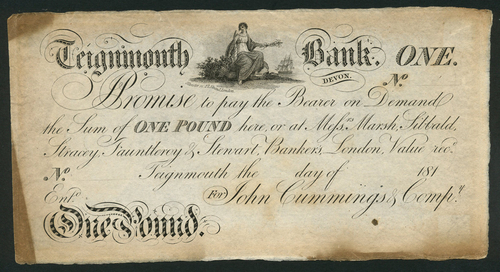 Teignmouth Bank. ONE.
DEVON.
No
I Promise to pay the Bearer on Demand
the Sum of ONE POUND here, or at Messrs Marsh, Sibbald,
Stracey, Fauntleroy & Stewart, Bankers, London, Value recd.
No Teignmouth the day of 181
Entd. For John Cummings & Compy.
One Pound.